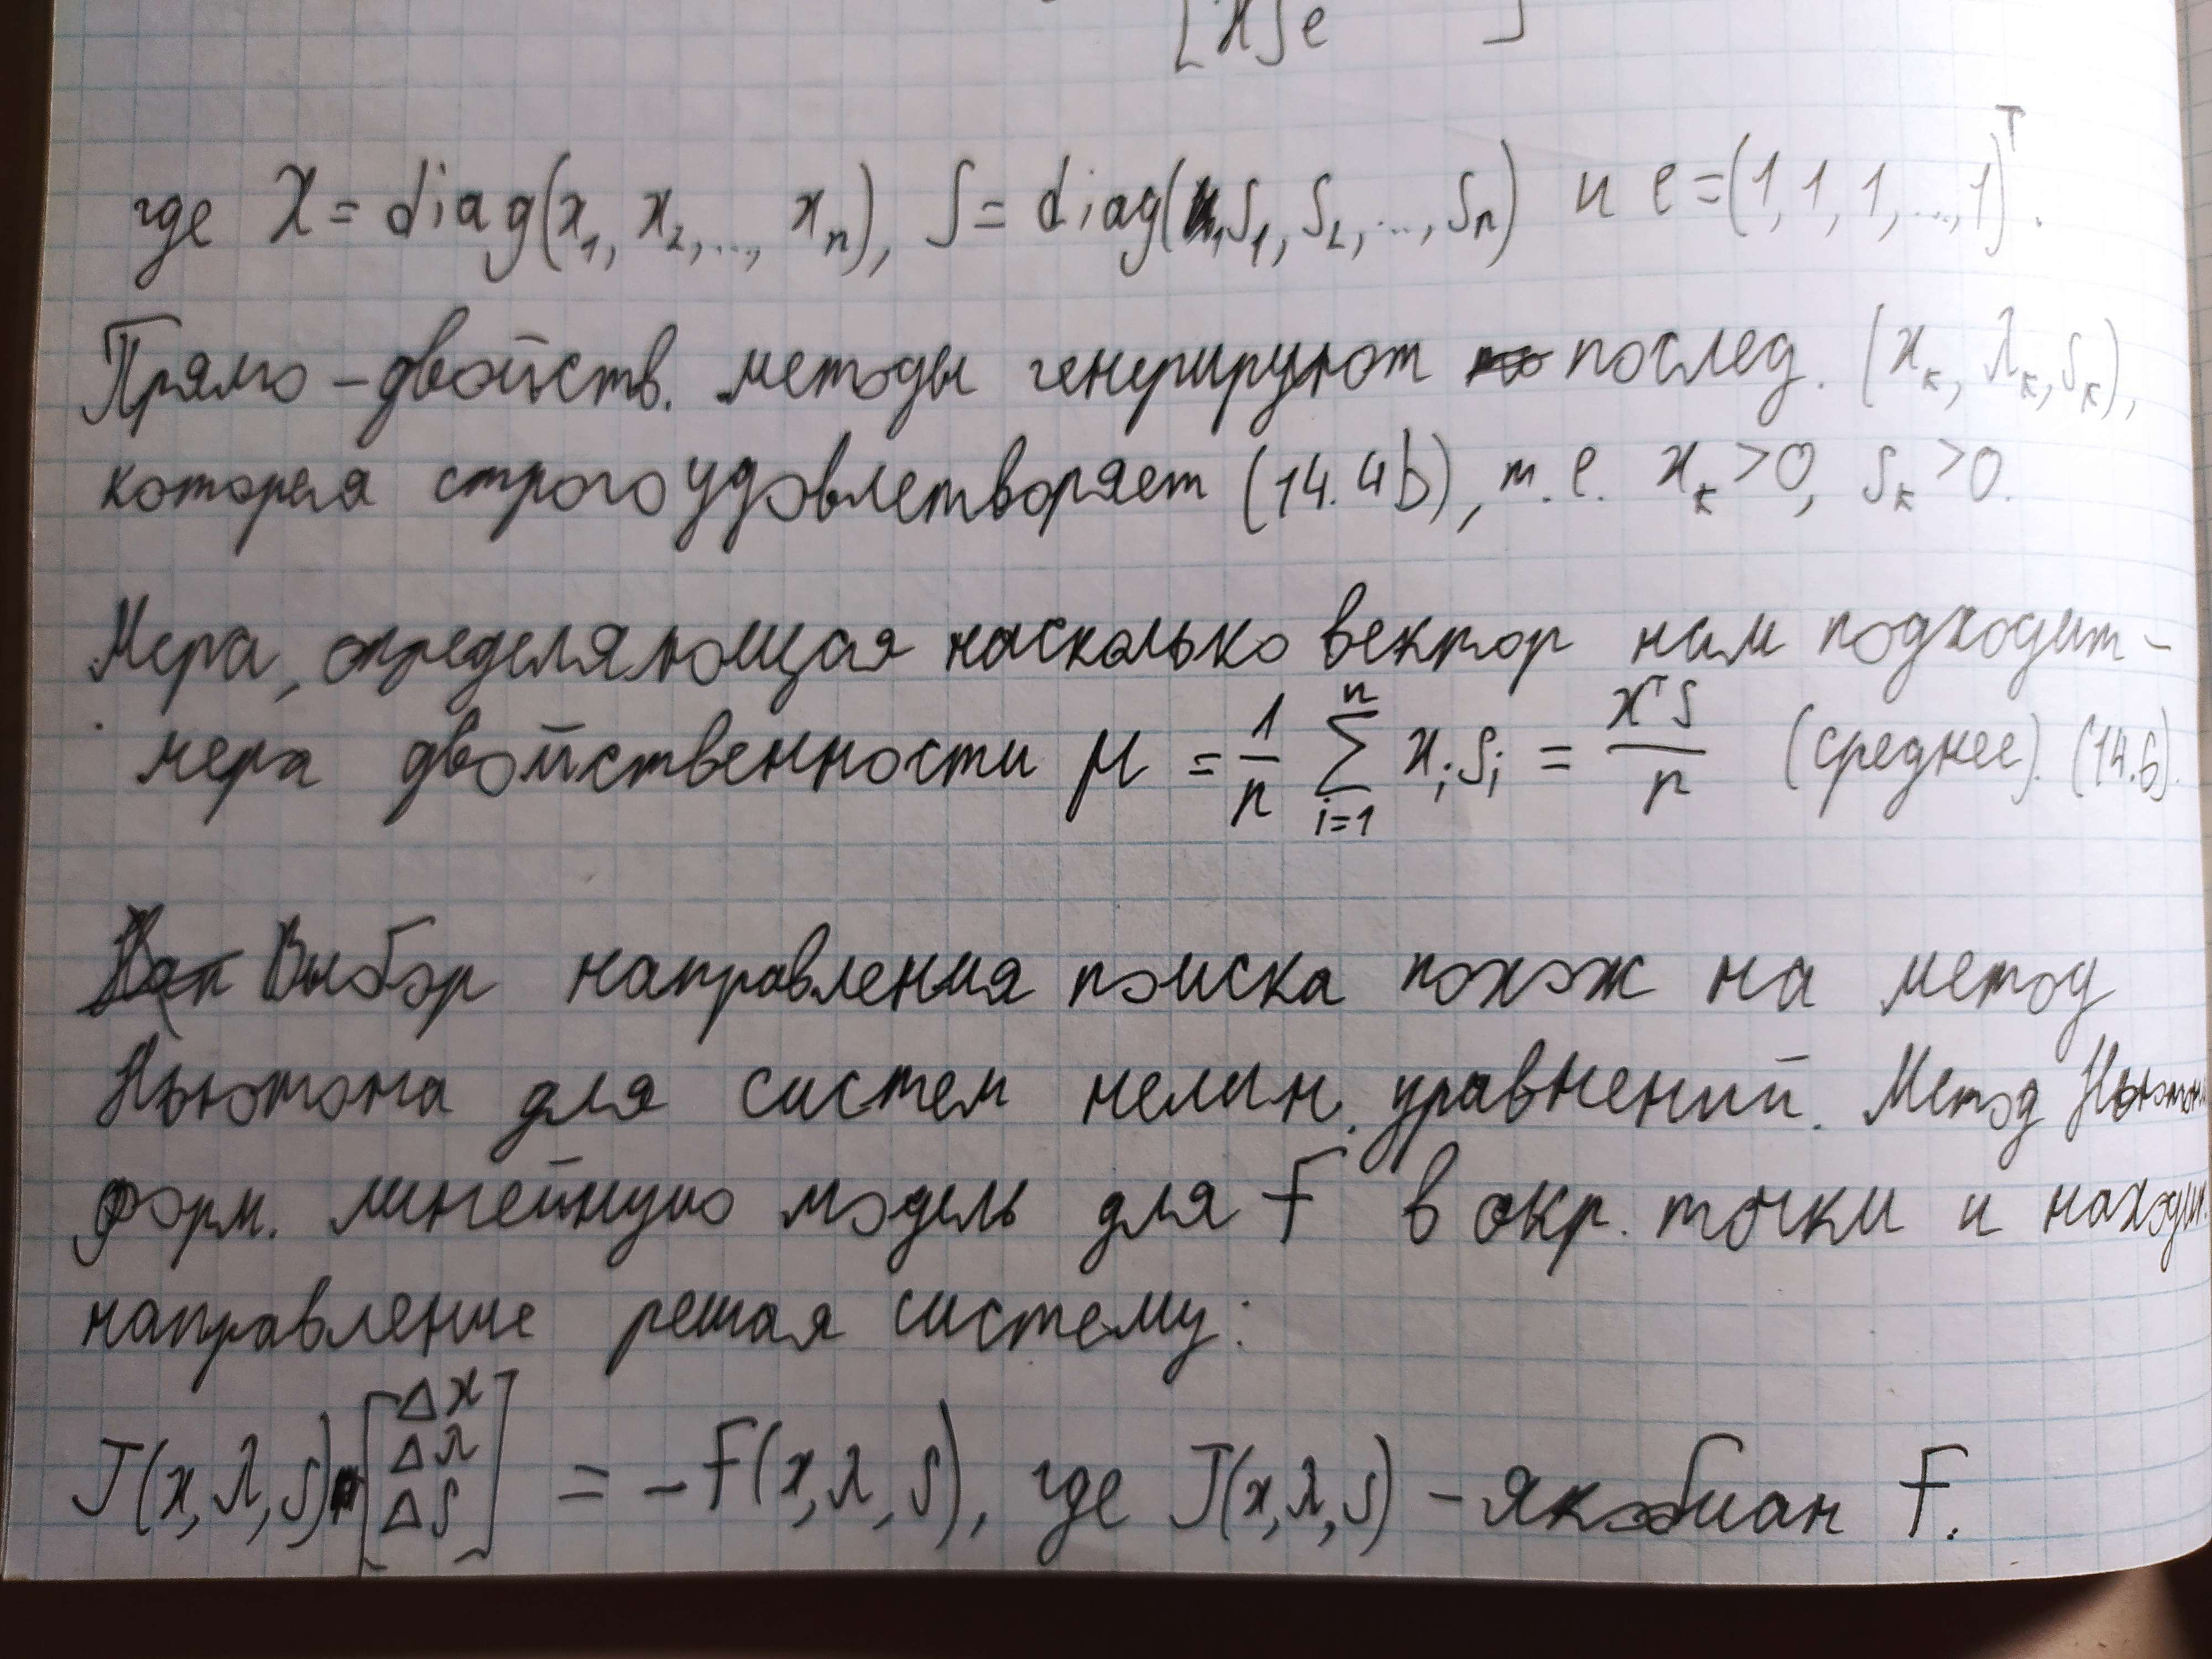 [XSe ]
где X = diag(x₁, x₂, ..., xₙ), S = diag(s₁, s₂, ..., sₙ) и e = (1, 1, 1, ..., 1)ᵀ.
Прямо-двойств. методы генерируют послед. (xₖ, λₖ, sₖ),
которая строго удовлетворяет (14.4b), т.е. xₖ > 0, sₖ > 0.
Мера, определяющая насколько вектор нам подходит -
мера двойственности μ = 1/n ∑ᵢ₌₁ⁿ xᵢsᵢ = xᵀs/n (среднее). (14.6).
Выбор направления поиска похож на метод
Ньютона для систем нелин. уравнений. Метод Ньютон
форм. линейную модель для F в окр. точки и находит
направление решая систему:
J(x, λ, s) [Δx Δλ Δs] = -F(x, λ, s), где J(x, λ, s) - якобиан F.